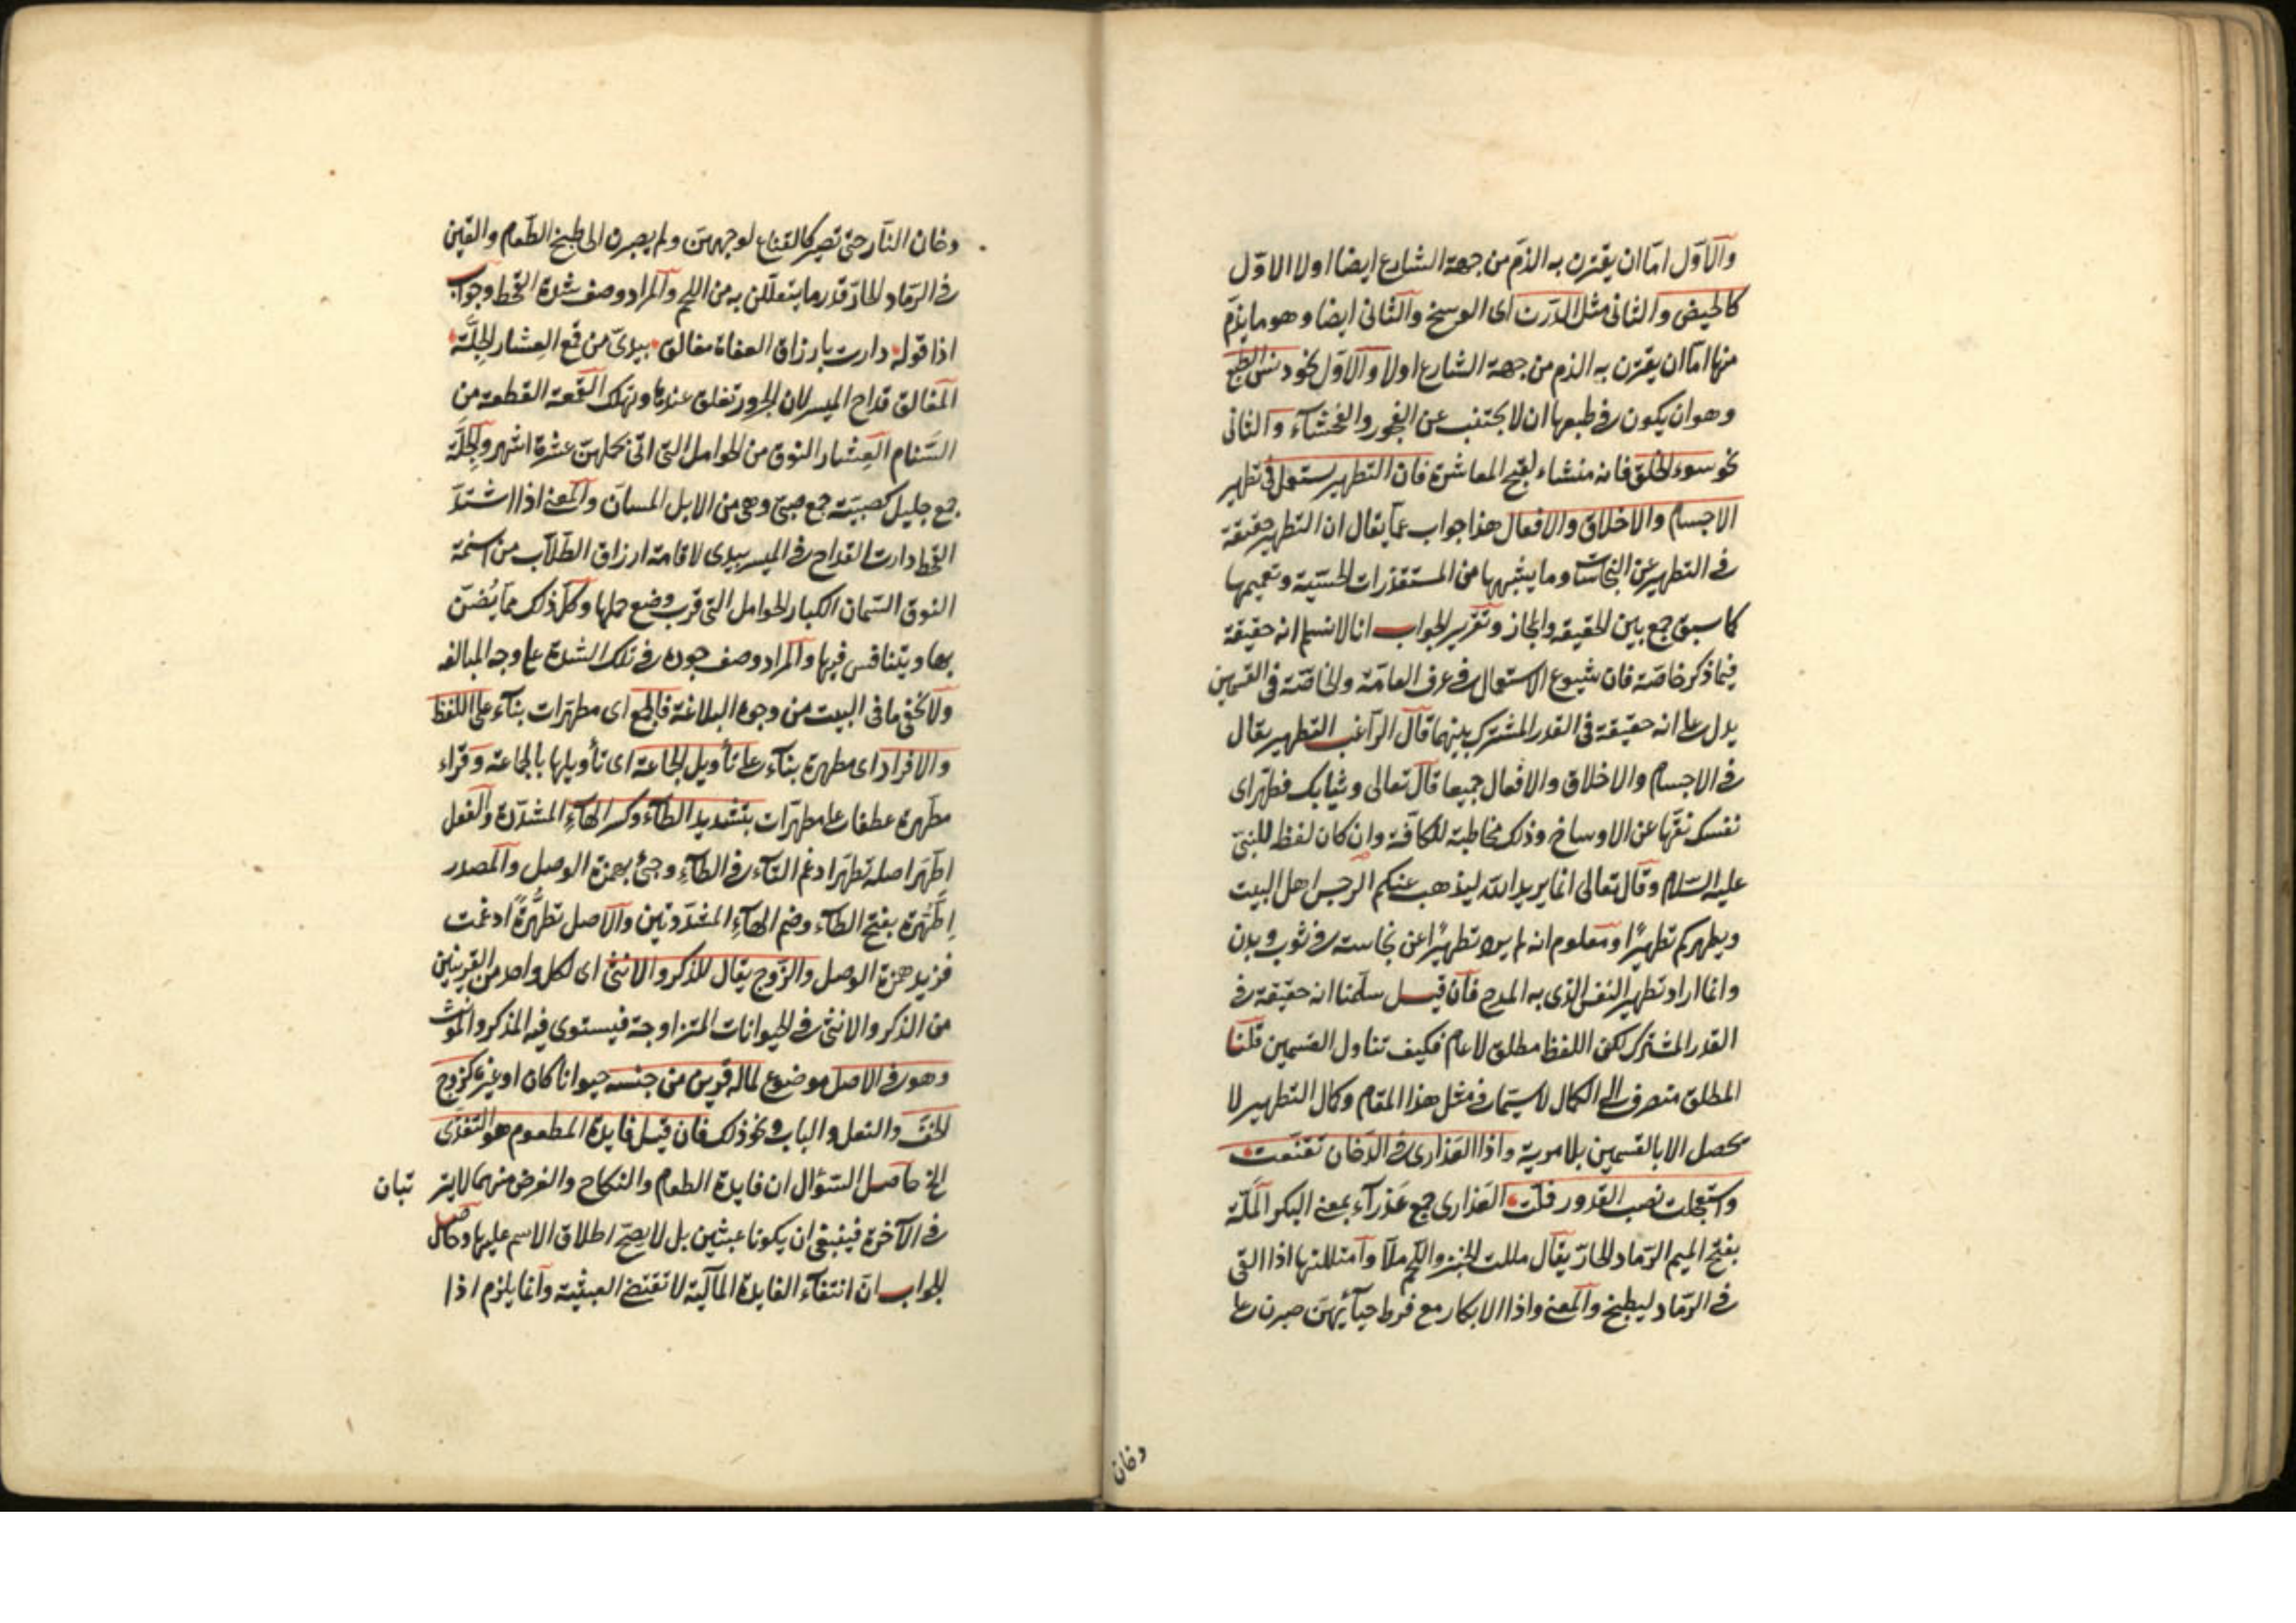 والاول اما ان يقترن به الذم من جهة الشارع ايضا اولا الاول
كالحيض والثانى مثل الدرن اى الوسخ والثانى ايضا وهو ما يذم
منها اما ان يقترن به الذم من جهة الشارع اولا والاول نحو دنس الطبع
وهو ان يكون فى طبعها ان لا يجتنب عن الفجور والفحشاء والثانى
نحو سوء الخلق فانه منشاء لقبح المعاشرة فان التطهير يستعمل فى تطهير
الاجسام والاخلاق والافعال هذا جواب عما يقال ان التطهير حقيقة
فى التطهير عن النجاسات وما يشبهها من المستقذرات الحسيّة وتعميمها
كما سبق جمع بين الحقيقه والمجاز وتقرير الجواب انا لا نسلم انه حقيقة
فيما ذكر خاصّة فان شيوع الاستعمال فى عرف العامّة والخاصّة فى القسمين
يدل على انه حقيقة فى القدر المشترك بينهما قال الراغب التطهير يقال
فى الاجسام والاخلاق والافعال جميعا قال تعالى وثيابك فطهّر اى
نفسك نقّها عن الاوساخ وذلك مخاطبة للكافّة وان كان لفظ للنبىّ
عليه السّلام وقال تعالى انما يريد الله ليذهب عنكم الرجس اهل البيت
ويطهركم تطهيرًا ومعلوم انه لم يرد تطهيرًا عن نجاسة فى ثوب وبدن
وانما اراد تطهير النفس الذى به المدح فان قيل سلّمنا انه حقيقة فى
القدر المشترك لكن اللفظ مطلق لا عام فكيف تناول القسمين قلنا
المطلق منصرف الى الكمال لا سيّما فى مثل هذا المقام وكمال التطهير لا
يحصل الا بالقسمين بلا مرية واذا العذارى فى الدخان تقنّعت
واستعجلت نصب القدور فملّت العذارى جمع عَذرآء بمعنى البكر الملّة
بفتح الميم الرّماد الحارّ يقال مللت الخبز واللحم ملّا وامتللتها اذا القى
فى الرّماد ليطبخ والمعنى واذا الابكار مع فرط حيآئهنّ صبرن على
دخان
دخان النار حتى تصير كالقناع لوجههنّ ولم يصبرن الى طبخ الطّعام والقين
فى الرّماد الحارّ قدر ما يتعلّلن به من اللحم والمراد وصف شدة القحط وجواب
اذا قوله دارت بارزاق العفاة مغالق بيدىّ من قمع العِشار الجِلّة
المغالق قداح الميسر لان الجزور تغلق عندها وتهلك القمعة القطعة من
السّنام العِشار النوق من الحوامل التى اتى نحلهنّ عشرة اشهر والجِلّة
جمع جليل كصبيَة جمع صبىّ وهى من الابل المسانّ والمعنى اذا اشتدّ
القحط دارت القداح فى الميسر بيدى لاقامة ارزاق الطّلاب من اسنمة
النوق السّمان الكبار الحوامل التى قرب وضع حملها وكل ذلك مما يُضنّ
بها ويتنافس فيها والمراد وصف جوده فى تلك الشدة على وجه المبالغه
ولا يخفى ما فى البيت من وجوه البلاغة فالجمع اى مطهّرات بناء على اللفظ
والافراد اى مطهرة بناء على تأويل الجماعة اى تأويلها بالجماعة وقراء
مطّهرة عطفا على مطهّرات بتشديد الطآء وكسر الهآء المشدّدة والفعل
اِطّهَّر اصله تطهّر ادغم التآء فى الطآء وجئ بهمزة الوصل والمصدر
اِطّهُّرة بفتح الطآء وضم الهآء المشدّدتين والاصل تطهُّرة ادغمت
فزيد همزة الوصل والزوج يقال للذكر والانثى اى لكل واحد من القرينين
من الذكر والانثى فى الحيوانات المتزاوجة فيستوى فيه المذكر والمؤنث
وهو فى الاصل موضوع لما له قرين من جنسه حيوانا كان او غيره كزوج
الخفّ والنعل والباب ونحو ذلك فان قيل فايدة المطعوم هو التغذّى
الخ حاصل السّؤال ان فايدة الطعام والنكاح والغرض منهما لا يتر تبان
فى الآخرة فينبغى ان يكونا عبثين بل لا يصحّ اطلاق الاسم عليها وحاصل
الجواب انّ انتفآء الفايدة المآلية لا تقتضى العبثية وانما يلزم اذا